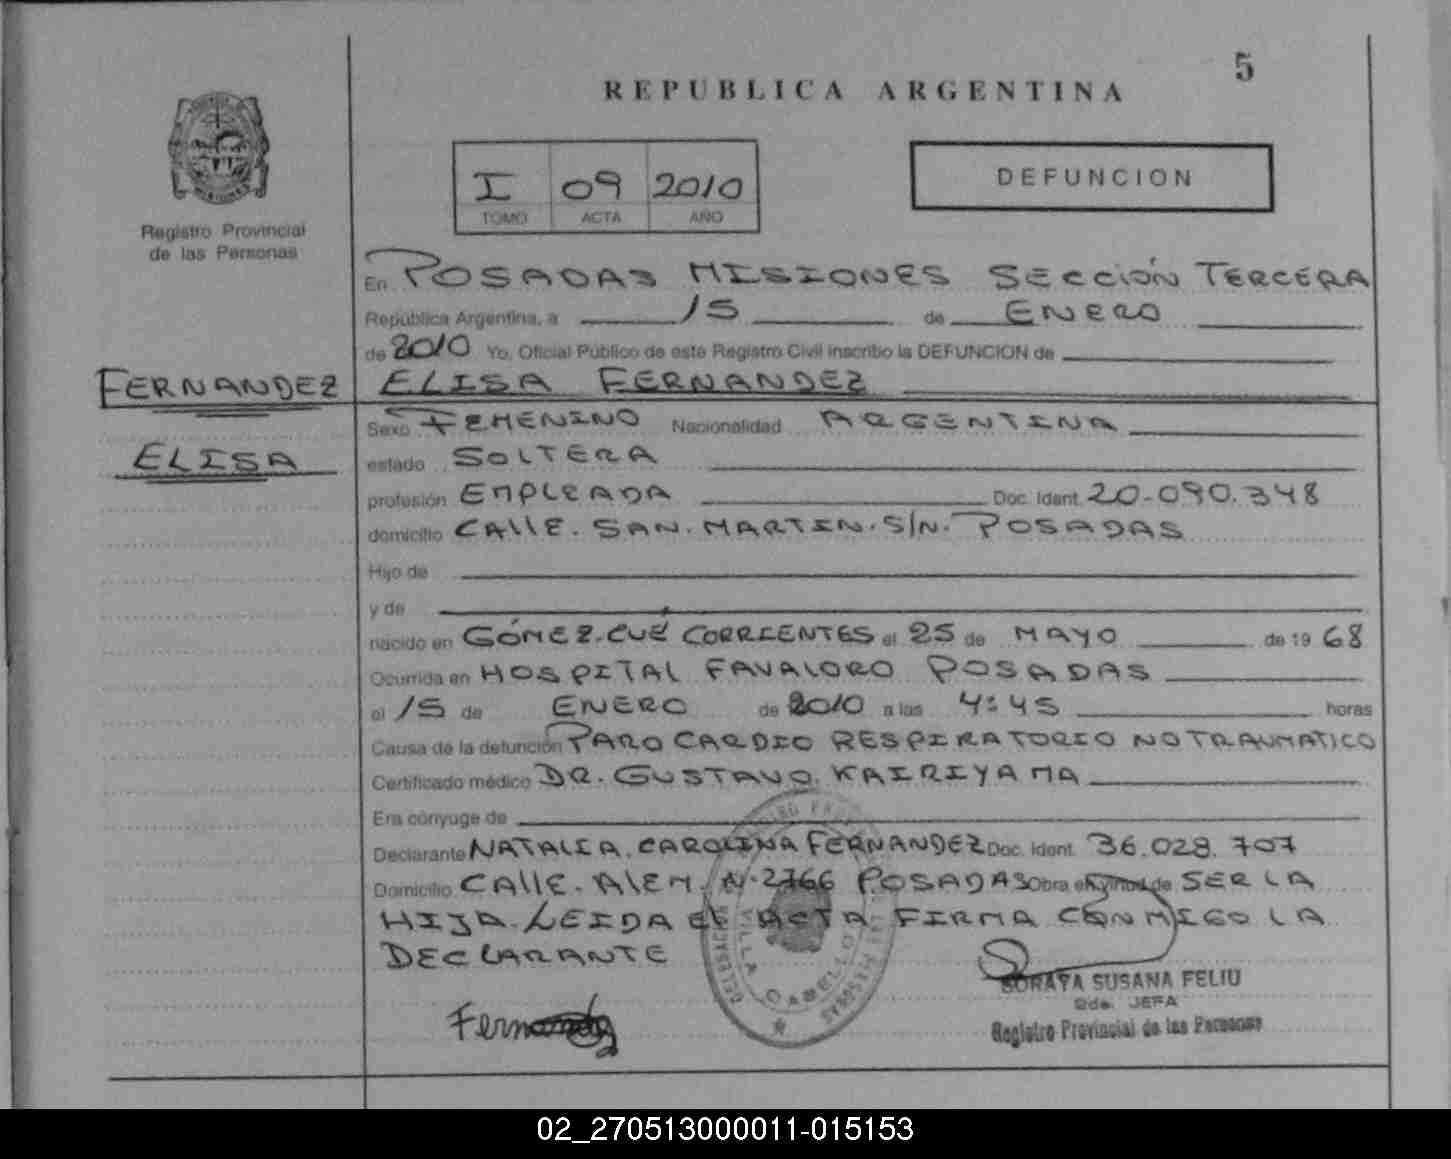 5
REPUBLICA ARGENTINA
I 09 2010
TOMO ACTA AÑO
DEFUNCION
Registro Provincial
de las Personas
En POSADAS MISIONES SECCIÓN TERCERA
República Argentina, a 15 de ENERO
de 2010 Yo, Oficial Público de este Registro Civil inscribo la DEFUNCION de
FERNANDEZ ELISA FERNANDEZ
Sexo FEMENINO Nacionalidad ARGENTINA
ELISA estado SOLTERA
profesión EMPLEADA Doc. Ident. 20-090.348
domicilio CALLE. SAN. MARTIN. S/N. POSADAS
Hijo de
y de
nacido en GÓMEZ. CUÉ CORRIENTES el 25 de MAYO de 19 68
Ocurrida en HOSPITAL FAVALORO POSADAS
el 15 de ENERO de 2010 a las 4:45 horas
Causa de la defunción PARO CARDIO RESPIRATORIO NO TRAUMATICO
Certificado médico DR. GUSTAVO. KAIRIYAMA
Era cónyuge de
Declarante NATALIA. CAROLINA FERNANDEZ Doc. Ident. 36.028.707
Domicilio CALLE. ALEM. N. 2766 POSADAS Obra en virtud de SER LA
HIJA. LEIDA EL ACTA FIRMA CONMIGO LA
DECLARANTE
SORAYA SUSANA FELIU
2da. JEFA
Registro Provincial de las Personas
Fernandez
DELEGACION
VILLA CABELLO
MISIONES
02_270513000011-015153